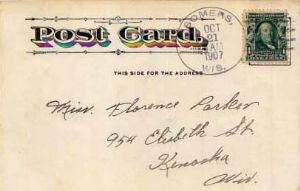 Post Card.
THIS SIDE FOR THE ADDRESS
SOMERS,
OCT
21
AM
1907
WIS.
Miss. Florence Parker
954 Elisbeth St.
Kenosha
Wis.